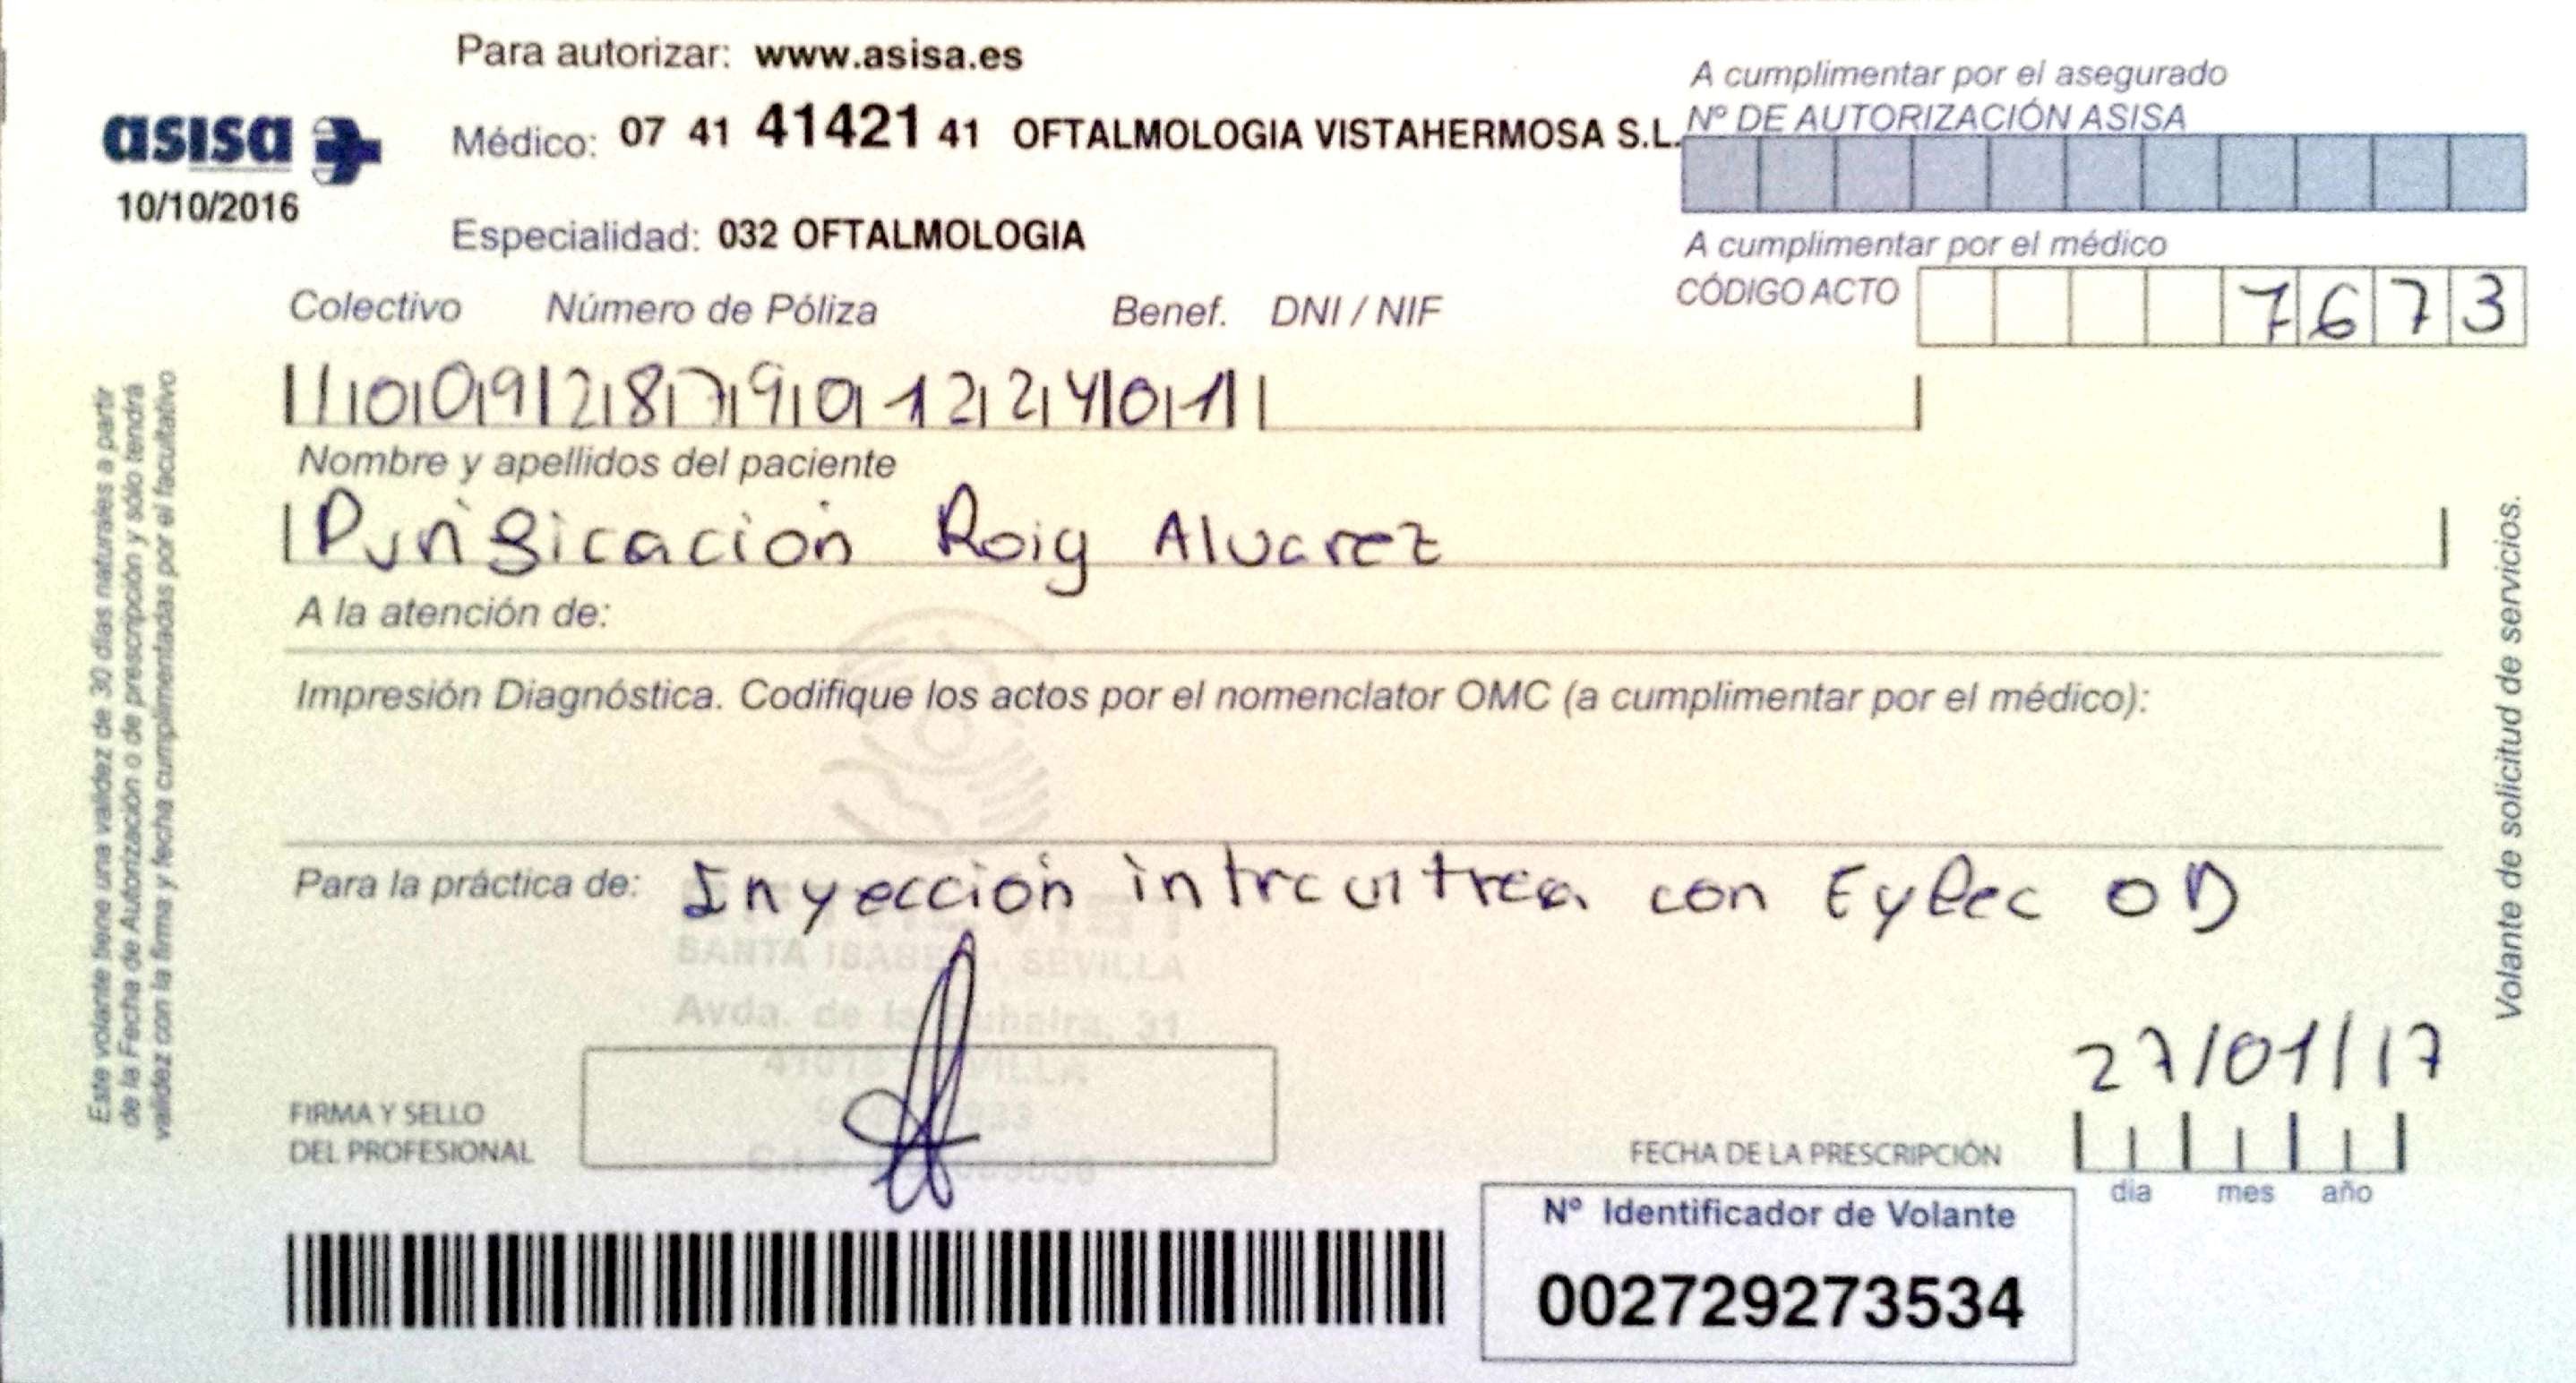 Para autorizar: www.asisa.es
asisa
10/10/2016
Médico: 07 41 41421 41 OFTALMOLOGIA VISTAHERMOSA S.L.
Especialidad: 032 OFTALMOLOGIA
A cumplimentar por el asegurado
Nº DE AUTORIZACIÓN ASISA
A cumplimentar por el médico
CÓDIGO ACTO 7673
Colectivo Número de Póliza Benef. DNI / NIF
Nombre y apellidos del paciente
Purificación Roig Alvarez
A la atención de:
Impresión Diagnóstica. Codifique los actos por el nomenclator OMC (a cumplimentar por el médico):
Para la práctica de: Inyección intravitrea con Eylec OD
SANTA ISABEL - SEVILLA
Avda. de la 31
FIRMA Y SELLO
DEL PROFESIONAL
27/01/17
FECHA DE LA PRESCRIPCIÓN
día mes año
Nº Identificador de Volante
002729273534
Este volante tiene una validez de 30 días naturales a partir
de la Fecha de Autorización o de prescripción y sólo tendrá
validez con la firma y fecha cumplimentadas por el facultativo
Volante de solicitud de servicios.